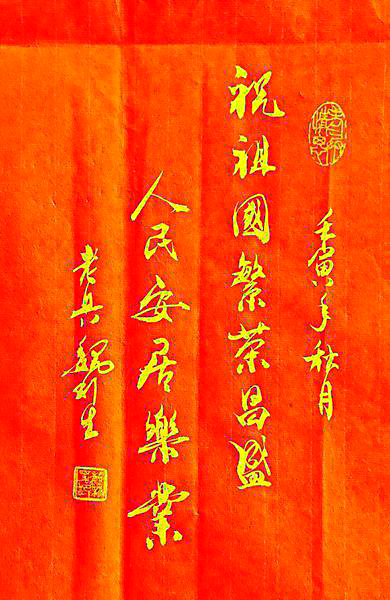 壬寅年秋月
祝祖國繁荣昌盛
人民安居樂業
老兵魏利生